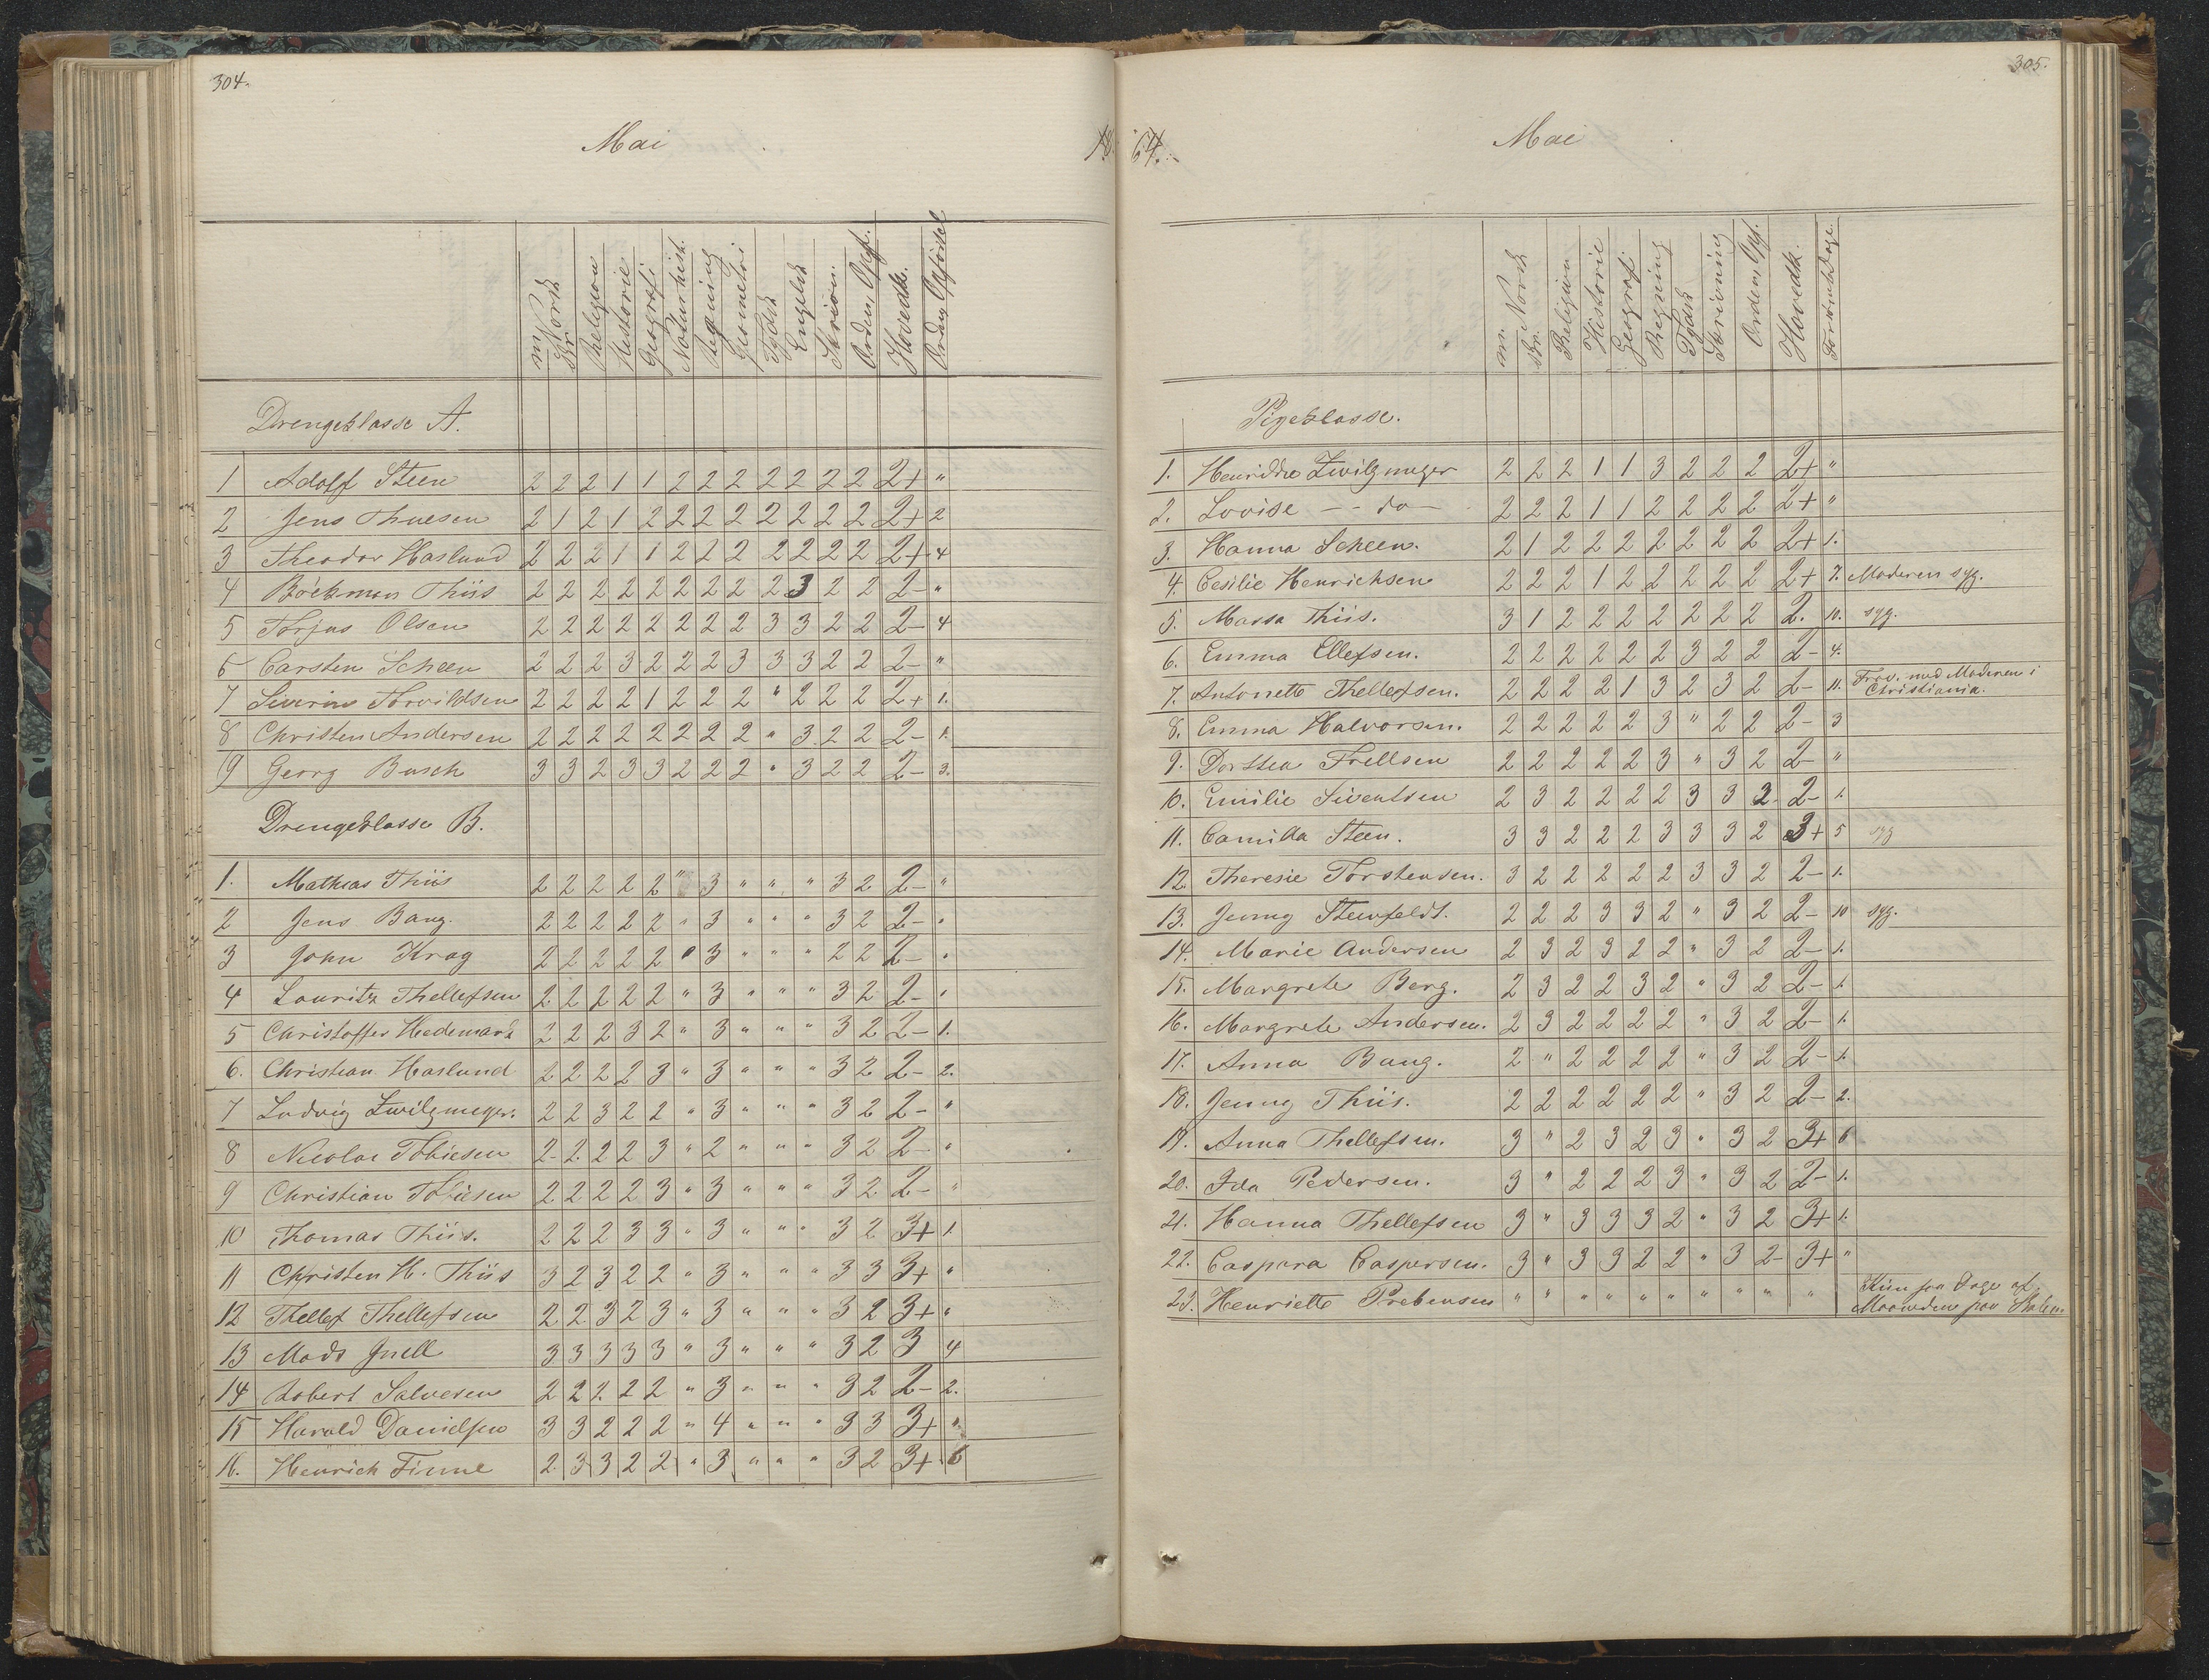 304.
Mai 18
m. Norsk
Skr.
Religion
Historie
Geografi
Naturhist.
Regning
Geometri
Tydsk
Engelsk
Skrivn.
Orden, Opf.
Hovedk.
Drengeklasse A.
1 Adolf Steen 2 2 2 1 1 2 2 2 2 2 2 2 2+ "
2 Jens Thuesen 2 1 2 1 2 2 2 2 2 2 2 2 2+ 2
3 Theodor Haslund 2 2 2 1 1 2 2 2 2 2 2 2 2+ 4
4 Böckman Thiis 2 2 2 2 2 2 2 2 2 3 2 2 2- "
5 Torjus Olsen 2 2 2 2 2 2 2 2 3 3 2 2 2- 4
6 Carsten Scheen 2 2 2 3 2 2 2 3 3 3 2 2 2- "
7 Severin Torvildsen 2 2 2 2 1 2 2 2 " 2 2 2 2+ 1.
8 Christen Andersen 2 2 2 2 2 2 2 2 " 3 2 2 2- 1.
9 Georg Busch 3 3 2 3 3 2 2 2 " 3 2 2 2- 3.
Drengeklasse B.
1. Mathias Thiis 2 2 2 2 2 " 3 " " " 3 2 2- "
2 Jens Bang. 2 2 2 2 2 " 3 " " " 3 2 2- "
3 John Krag 2 2 2 2 2 " 3 " " " 2 2 2- "
4 Lauritz Thellefsen 2 2 2 2 2 " 3 " " " 3 2 2- "
5 Christoffer Hedemark 2 2 2 3 2 " 3 " " " 3 2 2- 1.
6. Christian Haslund 2 2 2 2 3 " 3 " " " 3 2 2- 2.
7 Ludvig Zwilgmeyer. 2 2 3 2 2 " 3 " " " 3 2 2- "
8 Nicolai Tobiesen 2 2 2 2 3 " 2 " " " 3 2 2- "
9 Christian Tobiesen 2 2 2 2 3 " 3 " " " 3 2 2- "
10 Thomas Thiis. 2 2 2 3 3 " 3 " " " 3 2 3+ 1.
11 Christen H. Thiis 3 2 3 2 2 " 3 " " " 3 3 3+ "
12 Thellef Thellefsen 2 2 3 2 3 " 3 " " " 3 2 3+ "
13 Mads Juell 3 3 3 3 3 " 3 " " " 3 2 3 4
14 Robert Salvesen 2 2 2 2 2 " 3 " " " 3 2 2- 2.
15 Harald Danielsen 3 3 2 2 2 " 4 " " " 3 3 3+ "
16. Henrich Finne 2 3 3 2 2 " 3 " " " 3 2 3+ 6
305.
64. Mai
m. Norsk
Skr.
Religion
Historie
Geografi
Regning
Tydsk
Skrivning
Orden, Opf.
Hovedk.
Forsømte Dage.
Pigeklasse.
1. Henrikke Zwilgmeyer 2 2 2 1 1 3 2 2 2 2+ "
2. Lovise - - do - 2 2 2 1 1 2 2 2 2 2+ "
3. Hanna Scheen. 2 1 2 2 2 2 2 2 2 2+ 1.
4. Cesilie Henrichsen 2 2 2 1 2 2 2 2 2 2+ 7. Moderen syg.
5. Massa Thiis. 3 1 2 2 2 2 2 2 2 2. 10. syg.
6. Emma Ellefsen. 2 2 2 2 2 2 3 2 2 2- 4.
7. Antonette Thellefsen. 2 2 2 2 1 3 2 3 2 2- 11. Frav. med Moderen i
Christiania.
8. Emma Halvorsen. 2 2 2 2 2 3 " 2 2 2- 3
9. Dorthea Frellsen 2 2 2 2 2 3 " 3 2 2- "
10. Emilie Siventsen 2 3 2 2 2 2 3 3 2 2- 1.
11. Camilla Steen. 3 3 2 2 2 3 3 3 2 3+ 5 syg
12. Theresie Torstensen. 3 2 2 2 2 2 3 3 2 2- 1.
13. Jenny Steenfeldt. 2 2 2 3 3 2 " 3 2 2- 10 syg.
14. Marie Andersen 2 3 2 3 2 2 " 3 2 2- 1.
15. Margrete Berg. 2 3 2 2 3 2 " 3 2 2- 1.
16. Margrete Andersen. 2 3 2 2 2 2 " 3 2 2- 1.
17. Anna Bang. 2 " 2 2 2 2 " 3 2 2- 1.
18. Jenny Thiis. 2 2 2 2 2 2 " 3 2 2- 2.
19. Anna Thellefsen. 3 " 2 3 2 3 " 3 2 3+ 6
20. Ida Pedersen. 3 " 2 2 2 3 " 3 2 2- 1.
21. Hanna Thellefsen 3 " 3 3 3 2 " 3 2 3+ 1.
22. Caspara Caspersen. 3 " 3 3 2 2 " 3 2 3+ "
23. Henriette Prebensen " " " " " " " " " " Kun faa Dage af
Maaneden paa Skolen.